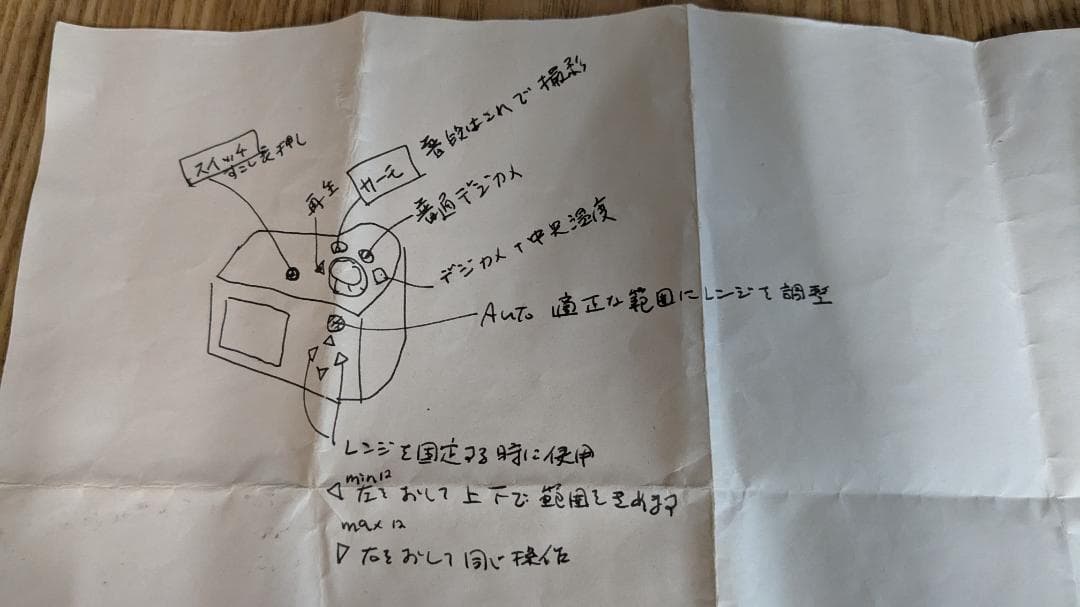 スイッチ
すこし長押し
再生
サーモ
普段はこれで撮影
普通デジカメ
デジカメ+中央温度
Auto 適正な範囲にレンジを調整
レンジを固定する時に使用
minは
◁ 左をおして上下で範囲をきめます
maxは
▷ 右をおして同じ操作